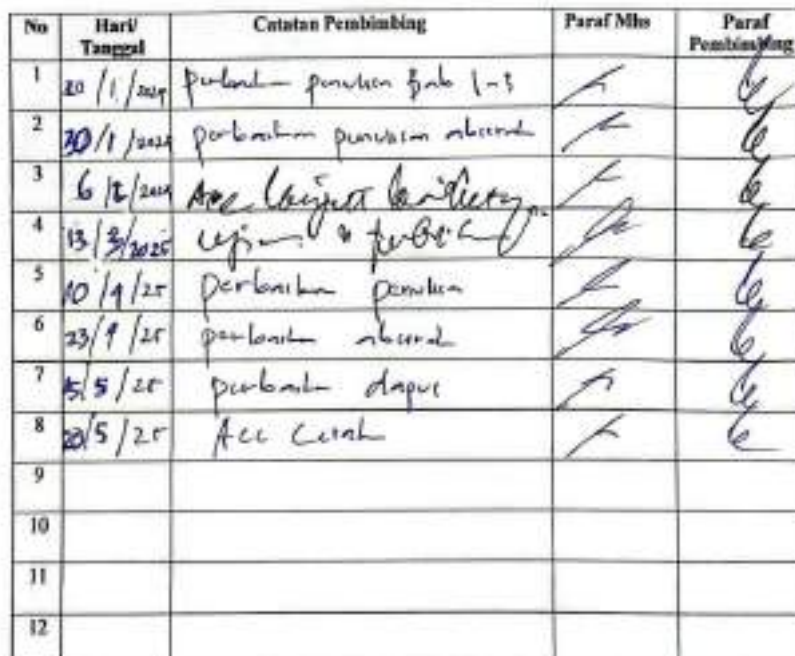 No Hari/Tanggal Catatan Pembimbing Paraf Mhs Paraf Pembimbing
1 20/1/2024 perbaikan penulisan Bab 1-3
2 30/1/2024 perbaikan penulisan
3 6/2/2024 Acc lanjut
4 13/3/2025
5 10/4/25 perbaikan penulisan
6 23/4/25 perbaikan
7 15/5/25 perbaikan dapus
8 20/5/25 Acc Cetak
9
10
11
12